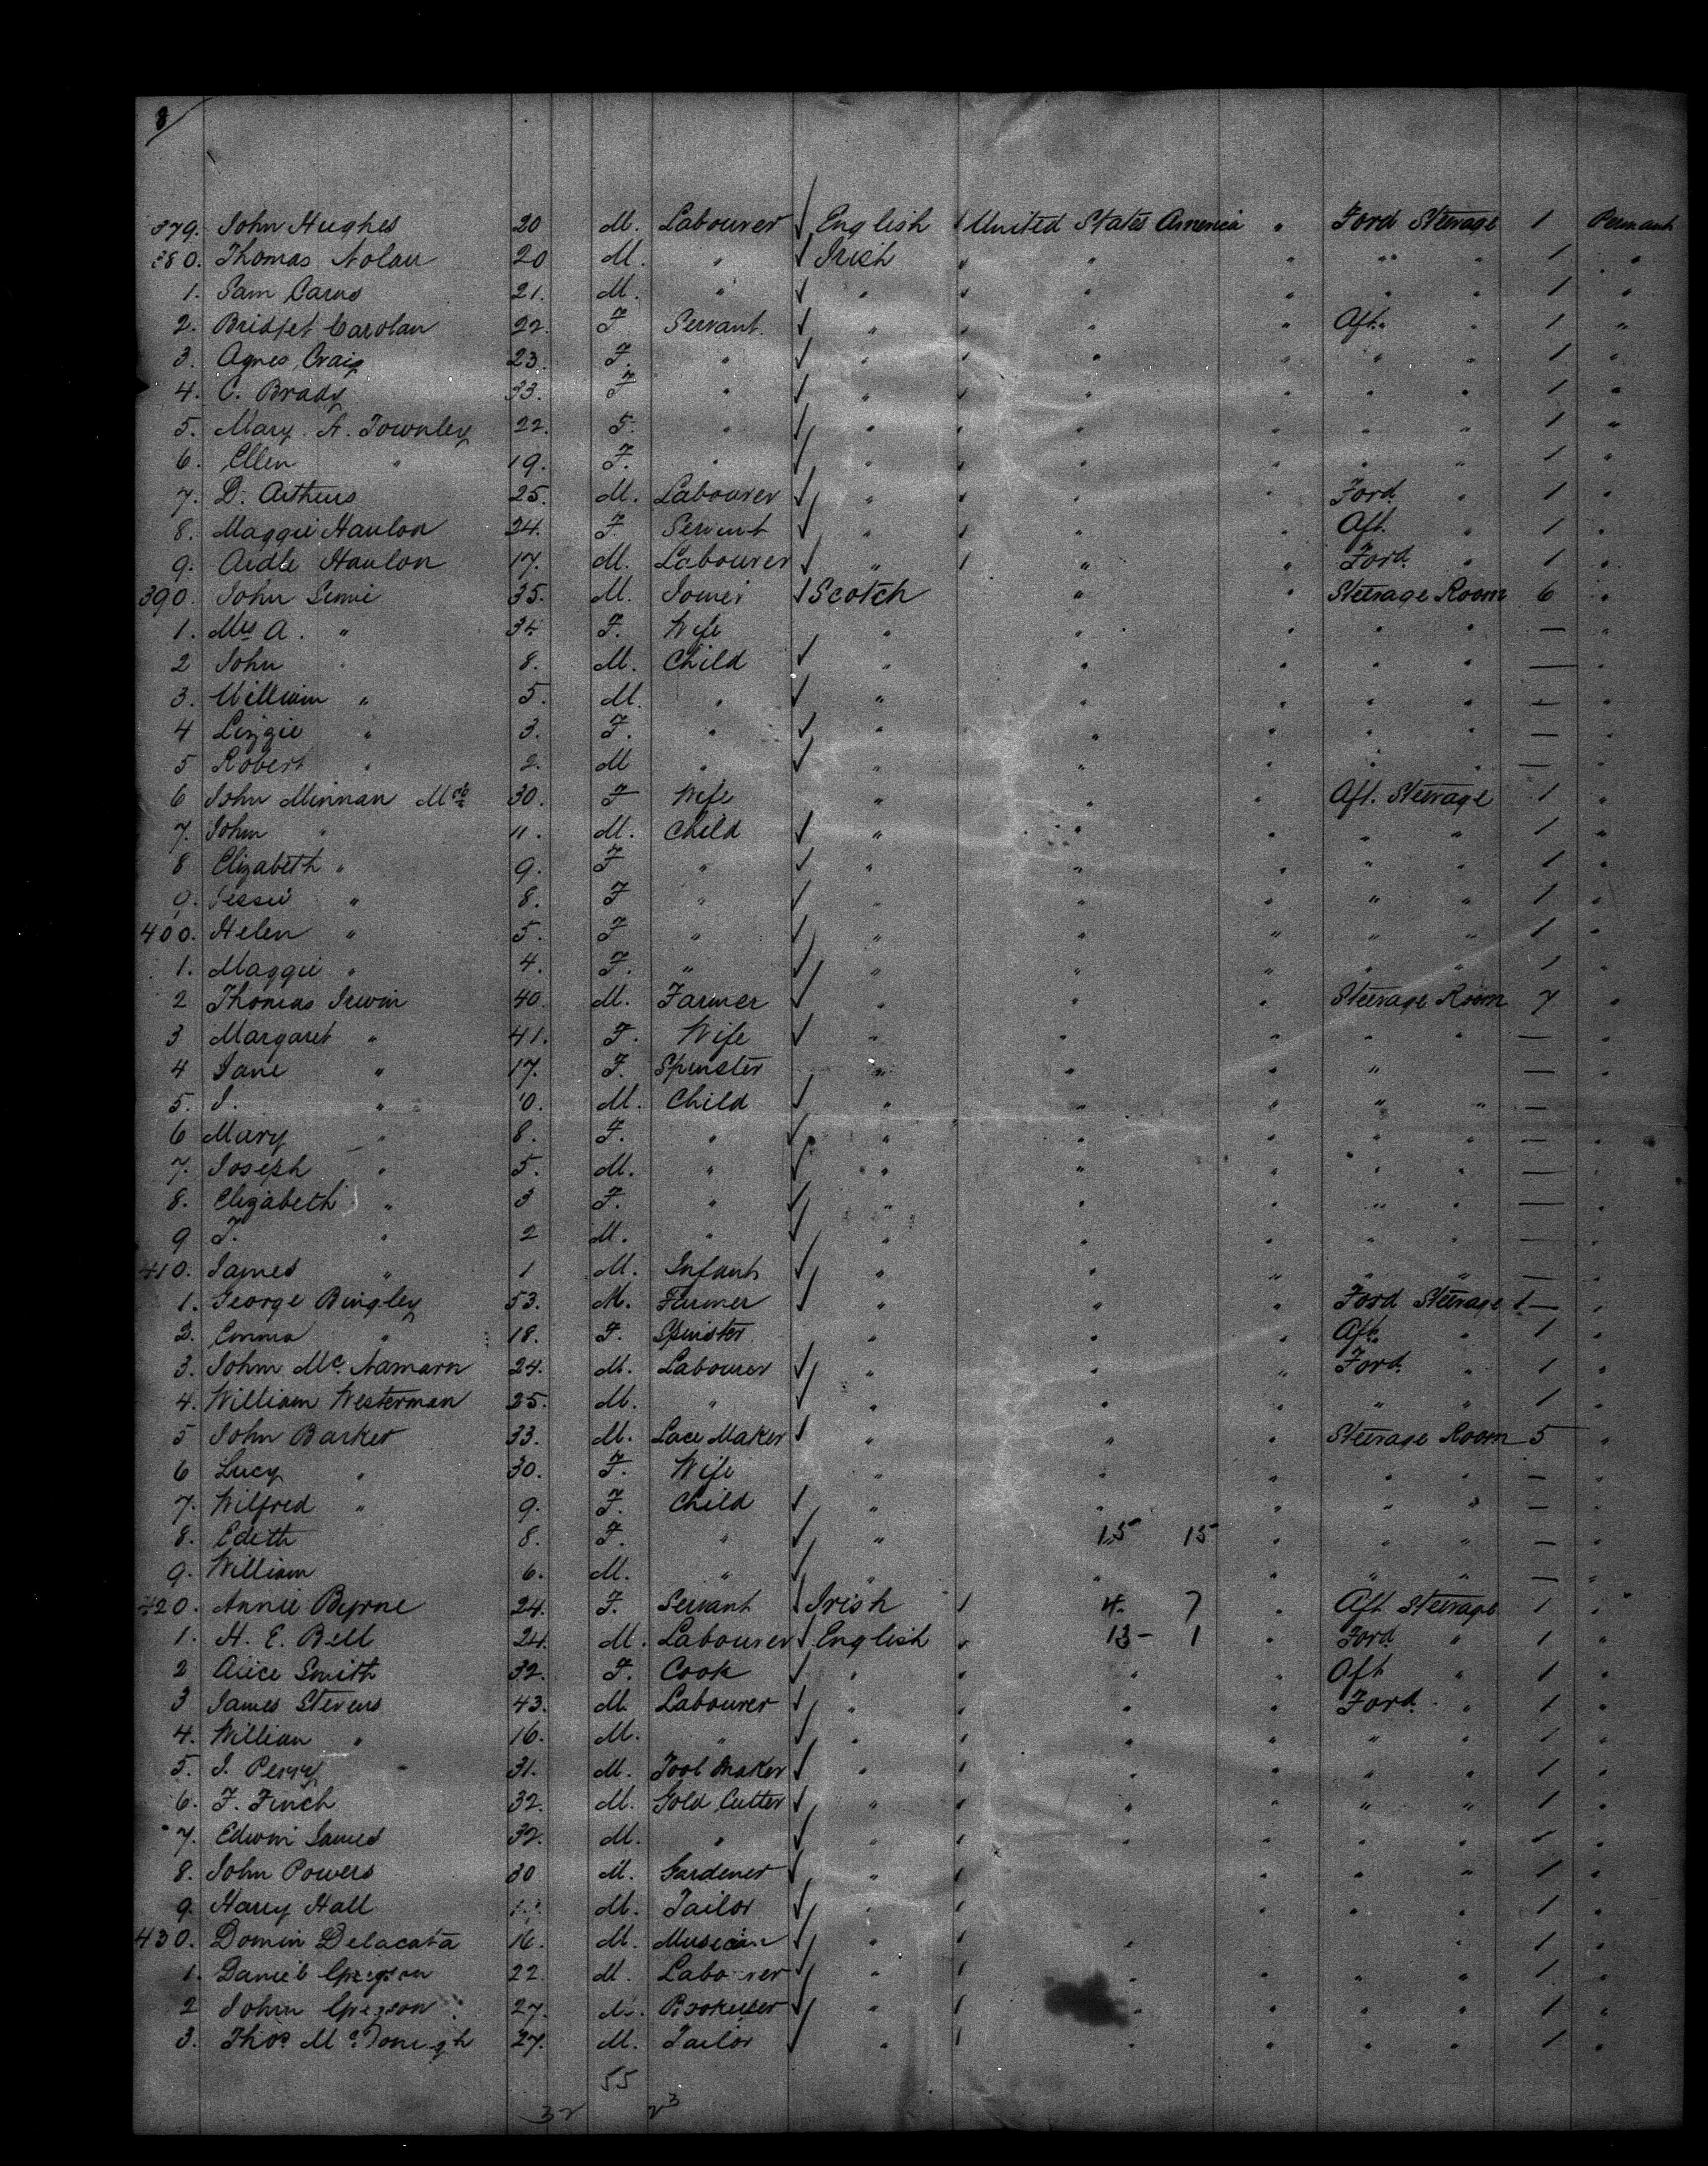 8
379. John Hughes 20 M. Labourer ✓ English 1 United States America " Ford Steerage 1 Permant
380. Thomas Nolan 20 M. " ✓ Irish " " " " " 1 "
1. Sam Carus 21. M. " ✓ " " " " " " 1 "
2. Bridget Carolan 22. F Servant. ✓ " " " " Aft. " 1 "
3. Agnes Craig 23. F. " ✓ " " " " " " 1 "
4. C. Brady 33. F " ✓ " " " " " " 1 "
5. Mary. A. Townley 22. F. " ✓ " " " " " " 1 "
6. Ellen " 19. F. " ✓ " " " " " " 1 "
7. D. Arthurs 25. M. Labourer ✓ " " " " Ford. " 1 "
8. Maggie Hanlon 24. F. Servant ✓ " " " " Aft. " 1 "
9. Ardle Hanlon 17. M. Labourer ✓ " 1 " " Ford. " 1 "
390. John Simie 35. M. Joiner ✓ Scotch " " Steerage Room 6 "
1. Mrs A. " 34. F. Wife " " " " " — "
2 John " 8. M. Child ✓ " " " " " — "
3. William " 5. M. " ✓ " " " " " — "
4 Lizzie " 3. F. " ✓ " " " " " — "
5 Robert " 2. M " ✓ " " " " " — "
6 John Minnan Mrs 30. F Wife " " " Aft. Steerage 1 "
7. John " 11. M. Child ✓ " " " " " 1 "
8 Elizabeth " 9. F " ✓ " " " " " 1 "
9. Jessie " 8. F " ✓ " " " " " 1 "
400. Helen " 5. F " ✓ " " " " " 1 "
1. Maggie " 4. F. " ✓ " " " " " 1 "
2 Thomas Irwin 40. M. Farmer ✓ " " " Steerage Room 7 "
3 Margaret " 41. F. Wife ✓ " " " " " — "
4 Jane " 17. F. Spinster " " " " — "
5. J. " 10. M. Child ✓ " " " " " — "
6 Mary " 8. F. " ✓ " " " " " — "
7. Joseph " 5. M. " ✓ " " " " " — "
8. Elizabeth " 3 F. " ✓ " " " " " — "
9 T. " 2 M. " ✓ " " " " " — "
410. James " 1 M. Infant ✓ " " " " " — "
1. George Bingley 53. M. Farmer ✓ " " " Ford Steerage 1 — "
2. Emma " 18. F. Spinster " " " Aft. " 1 "
3. John Mc. Namara 24. M. Labourer ✓ " " " Ford. " 1 "
4. William Westerman 25. M. " ✓ " " " " " 1 "
5 John Barker 33. M. Lace Maker ✓ " " " Steerage Room 5 "
6 Lucy " 30. F. Wife " " " " " — "
7. Wilfred " 9. F. Child ✓ " " " " " — "
8. Edith 8. F. " ✓ " 15 15 " " " —
9. William 6. M. " ✓ " " " " " — "
420. Annie Byrne 24. F. Servant ✓ Irish 1 4. 7 " Aft Steerage 1 "
1. H. E. Bell 24. M. Labourer ✓ English " 13 - 1 " Ford " 1 "
2 Alice Smith 32. F. Cook ✓ " " " " Aft " 1 "
3 James Stevens 43. M. Labourer ✓ " " " " Ford. " 1 "
4. William " 16. M. " ✓ " " " " " " 1 "
5. J. Perry 31. M. Tool Maker ✓ " " " " " " 1 "
6. F. Finch 32. M. Gold Cutter ✓ " " " " " " 1 "
7. Edwin James 32. M. " ✓ " " " " " " 1 "
8. John Powers 30 M. Gardener ✓ " " " " " 1 "
9. Harry Hall M. Tailor ✓ " " " " " 1 "
430. Domin Delacata 16. M. Musician ✓ " " " 1 "
1. Daniel Gregson 22. M. Labourer ✓ " " " " " 1 "
2 John Gregson 27. M. ✓ " 1 " " " " 1 "
3. Thos Mc. Donugh 27. M. Tailor ✓ " 1 " " " " 1 "
55
32 23